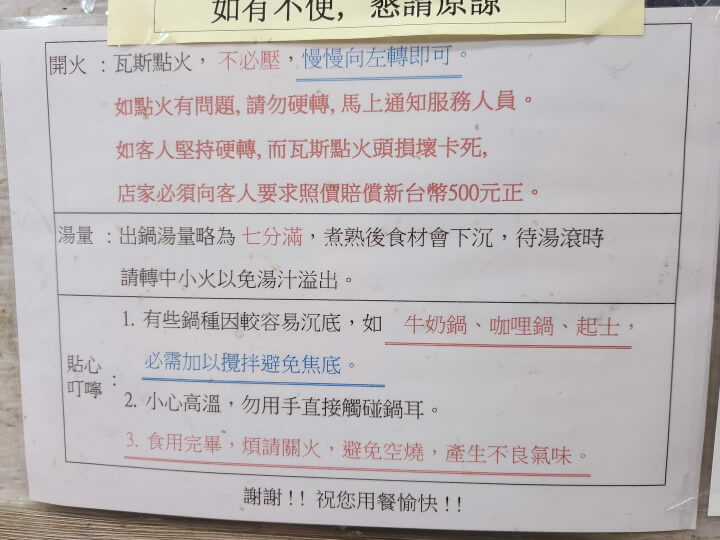 如有不便, 懇請原諒
開火 : 瓦斯點火, 不必壓, 慢慢向左轉即可。
如點火有問題, 請勿硬轉, 馬上通知服務人員。
如客人堅持硬轉, 而瓦斯點火頭損壞卡死,
店家必須向客人要求照價賠償新台幣500元正。
湯量 : 出鍋湯量略為 七分滿, 煮熟後食材會下沉, 待湯滾時
請轉中小火以免湯汁溢出。
貼心叮嚀 :
1. 有些鍋種因較容易沉底, 如 牛奶鍋、咖哩鍋、起士,
必需加以攪拌避免焦底。
2. 小心高溫, 勿用手直接觸碰鍋耳。
3. 食用完畢, 煩請關火, 避免空燒, 產生不良氣味。
謝謝!! 祝您用餐愉快!!